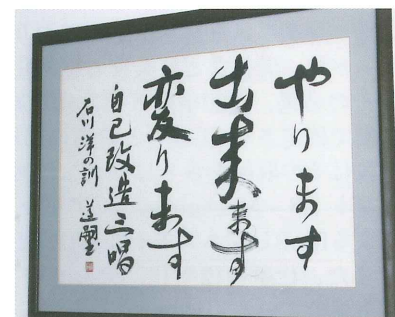 やります
出来ます
変ります
自己改造三唱
石川洋の訓